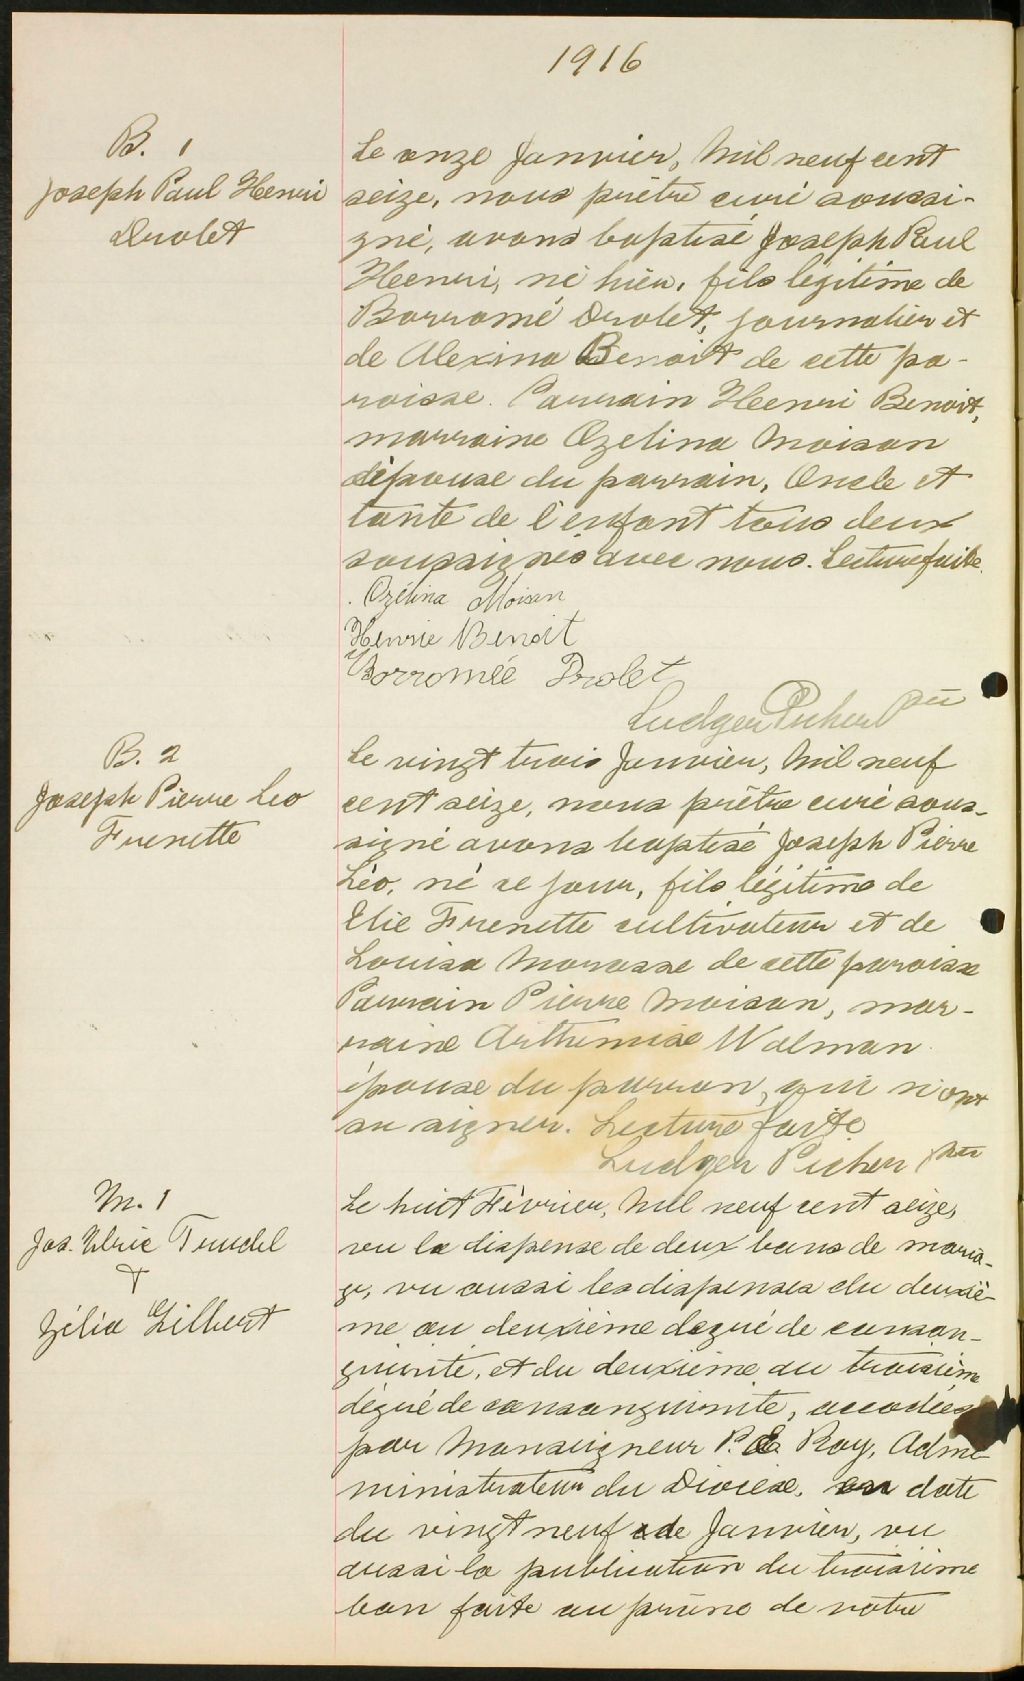 1916
B. 1
Joseph Paul Henri
Drolet
Le onze Janvier, Mil neuf cent
seize, nous prêtre curé soussi-
gné, avons baptisé Joseph Paul
Henri, né hier, fils légitime de
Borromé Drolet, journalier et
de Alexina Benoit de cette pa-
roisse. Parrain Henri Benoit,
marraine Ozelina Moisan
épouse du parrain, Oncle et
tante de l'enfant tous deux
soussignés avec nous. Lecture faite.
Ozélina Moisan
Henrie Benoit
Borromée Drolet
Ludger Picher Ptre
B. 2
Joseph Pierre Leo
Frenette
Le vingt trois Janvier, Mil neuf
cent seize, nous prêtre curé sous-
signé avons baptisé Joseph Pierre
Léo, né ce jour, fils légitime de
Elie Frenette cultivateur et de
Louisa Morasse de cette paroisse
Parrain Pierre Moisan, mar-
raine Arthemise Walman
épouse du parran, qui n'ont
su signer. Lecture faite
Ludger Picher Ptre
M. 1
Jos. Ulric Trudel
&
Zélia Gilbert
Le huit Février, Mil neuf cent seize,
vu la dispense de deux bans de maria-
ge, vu aussi les dispenses du deuxiè-
me au deuxième degré de consan-
guinité, et du deuxième au troisième
dégré de consanguinité, accodées
par Monseigneur P. E. Roy, Admi-
ministrateur du Diocèse, en date
du vingt neuf de Janvier, vu
aussi la publication du troisième
ban faite au prône de notre